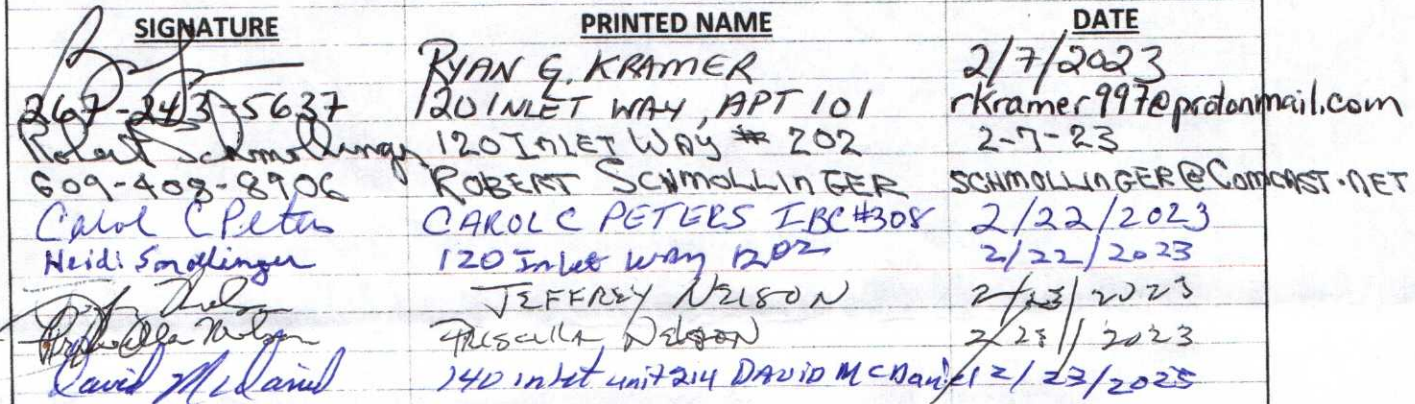 SIGNATURE PRINTED NAME DATE
RYAN G. KRAMER 2/7/2023
267-243-5637 120 INLET WAY, APT 101 rkramer997@protonmail.com
Robert Schmollinger 120 INLET WAY # 202 2-7-23
609-408-8906 ROBERT SCHMOLLINGER SCHMOLLINGER@COMCAST.NET
Carol C Peters CAROL C PETERS IBC#308 2/22/2023
Heidi 120 Inlet Way 2/22/2023
JEFFREY NELSON 2/23/2023
Priscilla Nelson PRISCILLA NELSON 2/23/2023
David McDaniel 140 inlet unit 214 DAVID McDaniel 2/23/2023